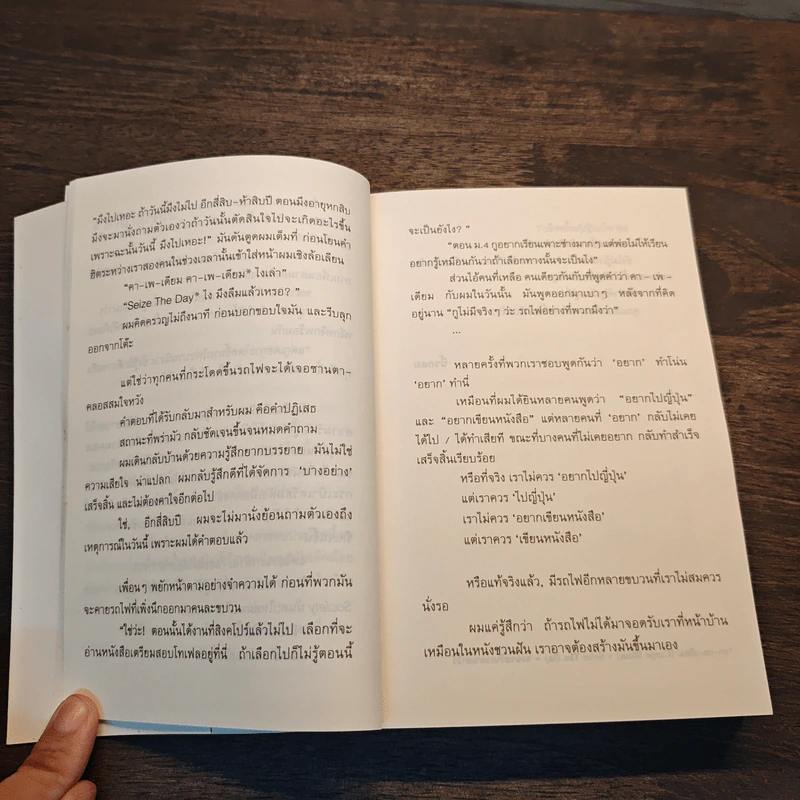 “มึงไปเหอะ ถ้าวันนี้มึงไม่ไป อีกสี่สิบ-ห้าสิบปี ตอนมึงอายุหกสิบ
มึงจะมานั่งถามตัวเองว่าถ้าวันนั้นตัดสินใจไปจะเกิดอะไรขึ้น
เพราะฉะนั้นวันนี้ มึงไปเหอะ!” มันดันตูดผมเต็มที่ ก่อนโยนคำ
ฮิตระหว่างเราสองคนในช่วงเวลานั้นเข้าใส่หน้าผมเชิงล้อเลียน
“คา-เพ-เดียม คา-เพ-เดียม* ไงเล่า”
“Seize The Day* ไง มึงลืมแล้วเหรอ? ”
ผมคิดครวญไม่ถึงนาที ก่อนบอกขอบใจมัน และรีบลุก
ออกจากโต๊ะ
แต่ใช่ว่าทุกคนที่กระโดดขึ้นรถไฟจะได้เจอซานตา-
คลอสสมใจหวัง
คำตอบที่ได้รับกลับมาสำหรับผม คือคำปฏิเสธ
สถานะที่พร่ามัว กลับชัดเจนขึ้นจนหมดคำถาม
ผมเดินกลับบ้านด้วยความรู้สึกยากบรรยาย มันไม่ใช่
ความเสียใจ น่าแปลก ผมกลับรู้สึกดีที่ได้จัดการ ‘บางอย่าง’
เสร็จสิ้น และไม่ต้องคาใจอีกต่อไป
ใช่, อีกสี่สิบปี ผมจะไม่มานั่งย้อนถามตัวเองถึง
เหตุการณ์ในวันนี้ เพราะผมได้คำตอบแล้ว
เพื่อนๆ พยักหน้าตามอย่างจำความได้ ก่อนที่พวกมัน
จะคายรถไฟที่เพิ่งนึกออกมาคนละขบวน
“ใช่ว่ะ! ตอนนั้นได้งานที่สิงคโปร์แล้วไม่ไป เลือกที่จะ
อ่านหนังสือเตรียมสอบโทเฟลอยู่ที่นี่ ถ้าเลือกไปก็ไม่รู้ตอนนี้
จะเป็นยังไง? ”
“ตอน ม.4 กูอยากเรียนเพาะช่างมากๆ แต่พ่อไม่ให้เรียน
อยากรู้เหมือนกันว่าถ้าเลือกทางนั้นจะเป็นไง”
ส่วนไอ้คนที่เหลือ คนเดียวกันกับที่พูดคำว่า คา - เพ -
เดียม กับผมในวันนั้น มันพูดออกมาเบาๆ หลังจากที่คิด
อยู่นาน “กูไม่มีจริงๆ ว่ะ รถไฟอย่างที่พวกมึงว่า”
...
หลายครั้งที่พวกเราชอบพูดกันว่า ‘อยาก’ ทำโน่น
‘อยาก’ ทำนี่
เหมือนที่ผมได้ยินหลายคนพูดว่า “อยากไปญี่ปุ่น”
และ “อยากเขียนหนังสือ” แต่หลายคนที่ ‘อยาก’ กลับไม่เคย
ได้ไป / ได้ทำเสียที ขณะที่บางคนที่ไม่เคยอยาก กลับทำสำเร็จ
เสร็จสิ้นเรียบร้อย
หรือที่จริง เราไม่ควร ‘อยากไปญี่ปุ่น’
แต่เราควร ‘ไปญี่ปุ่น’
เราไม่ควร ‘อยากเขียนหนังสือ’
แต่เราควร ‘เขียนหนังสือ’
หรือแท้จริงแล้ว, มีรถไฟอีกหลายขบวนที่เราไม่สมควร
นั่งรอ
ผมแค่รู้สึกว่า ถ้ารถไฟไม่ได้มาจอดรับเราที่หน้าบ้าน
เหมือนในหนังชวนฝัน เราอาจต้องสร้างมันขึ้นมาเอง